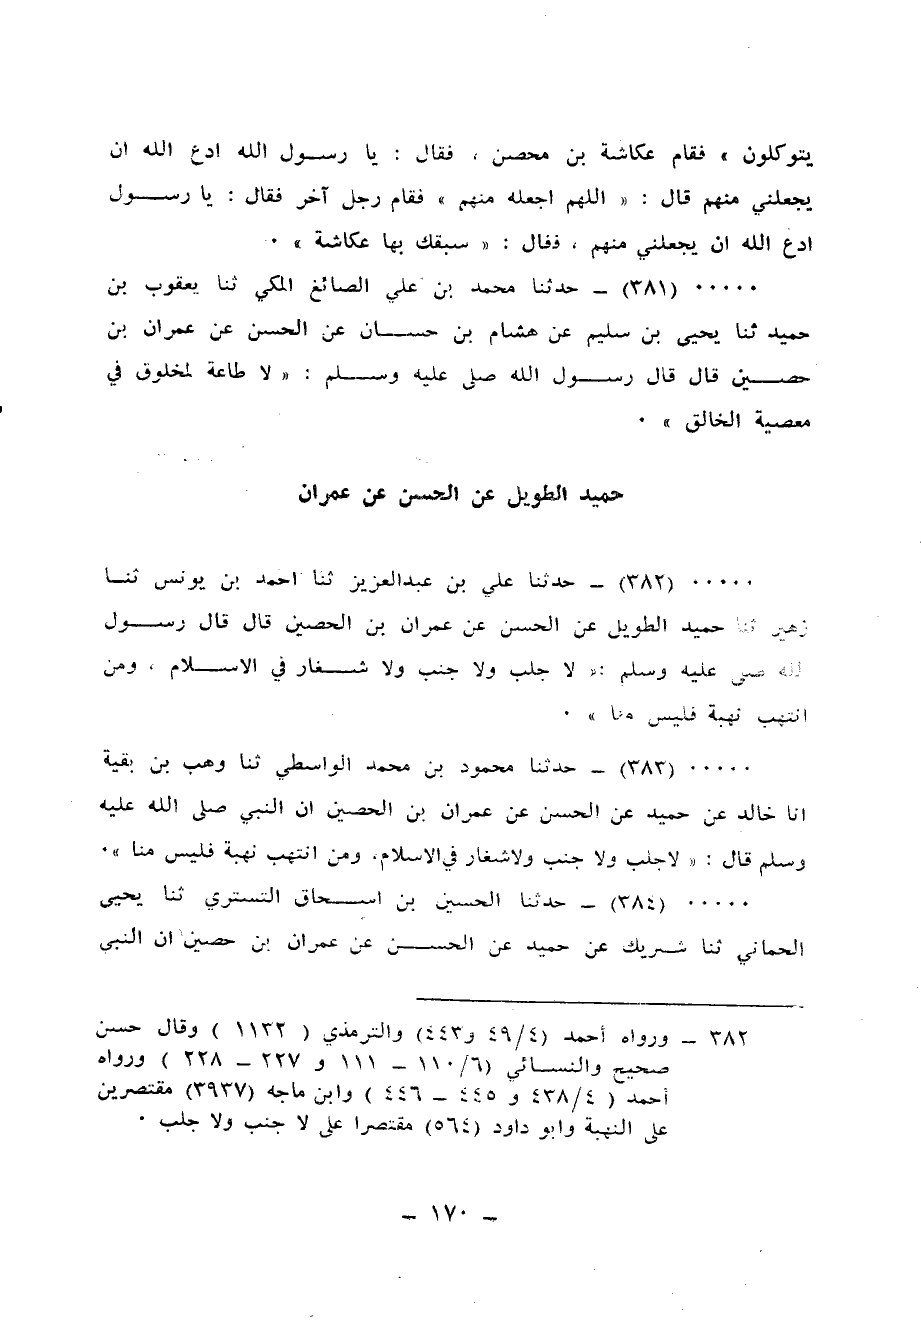 يتوكلون » فقام عكاشة بن محصن ، فقال : يا رسول الله ادع الله ان
يجعلني منهم قال : « اللهم اجعله منهم » فقام رجل آخر فقال : يا رسول
ادع الله ان يجعلني منهم ، فقال : « سبقك بها عكاشة » ٠
٠٠٠٠٠ (٣٨١) ــ حدثنا محمد بن علي الصائغ المكي ثنا يعقوب بن
حميد ثنا يحيى بن سليم عن هشام بن حسان عن الحسن عن عمران بن
حصين قال قال رسول الله صلى عليه وسلم : « لا طاعة لمخلوق في
معصية الخالق » ٠
حميد الطويل عن الحسن عن عمران
٠٠٠٠٠ (٣٨٢) ــ حدثنا علي بن عبدالعزيز ثنا احمد بن يونس ثنا
زهير ثنا حميد الطويل عن الحسن عن عمران بن الحصين قال قال رسول
لله صلى عليه وسلم :« لا جلب ولا جنب ولا شغار في الاسلام ، ومن
انتهب نهبة فليس منا » ٠
٠٠٠٠٠ (٣٨٣) ــ حدثنا محمود بن محمد الواسطي ثنا وهب بن بقية
انا خالد عن حميد عن الحسن عن عمران بن الحصين ان النبي صلى الله عليه
وسلم قال : « لاجلب ولا جنب ولاشغار في الاسلام، ومن انتهب نهبة فليس منا »٠
٠٠٠٠٠ (٣٨٤) ــ حدثنا الحسين بن اسحاق التستري ثنا يحيى
الحماني ثنا شريك عن حميد عن الحسن عن عمران بن حصين ان النبي
٣٨٢ ــ ورواه أحمد (٤٩/٤ و٤٤٣) والترمذي ( ١١٣٢ ) وقال حسن
صحيح والنسائي (١١٠/٦ ــ ١١١ و ٢٢٧ ــ ٢٢٨ ) ورواه
أحمد ( ٤٣٨/٤ و ٤٤٥ ــ ٤٤٦ ) وابن ماجه (٣٩٣٧) مقتصرين
على النهبة وابو داود (٥٦٤) مقتصرا على لا جنب ولا جلب ٠
ــ ١٧٠ ــ